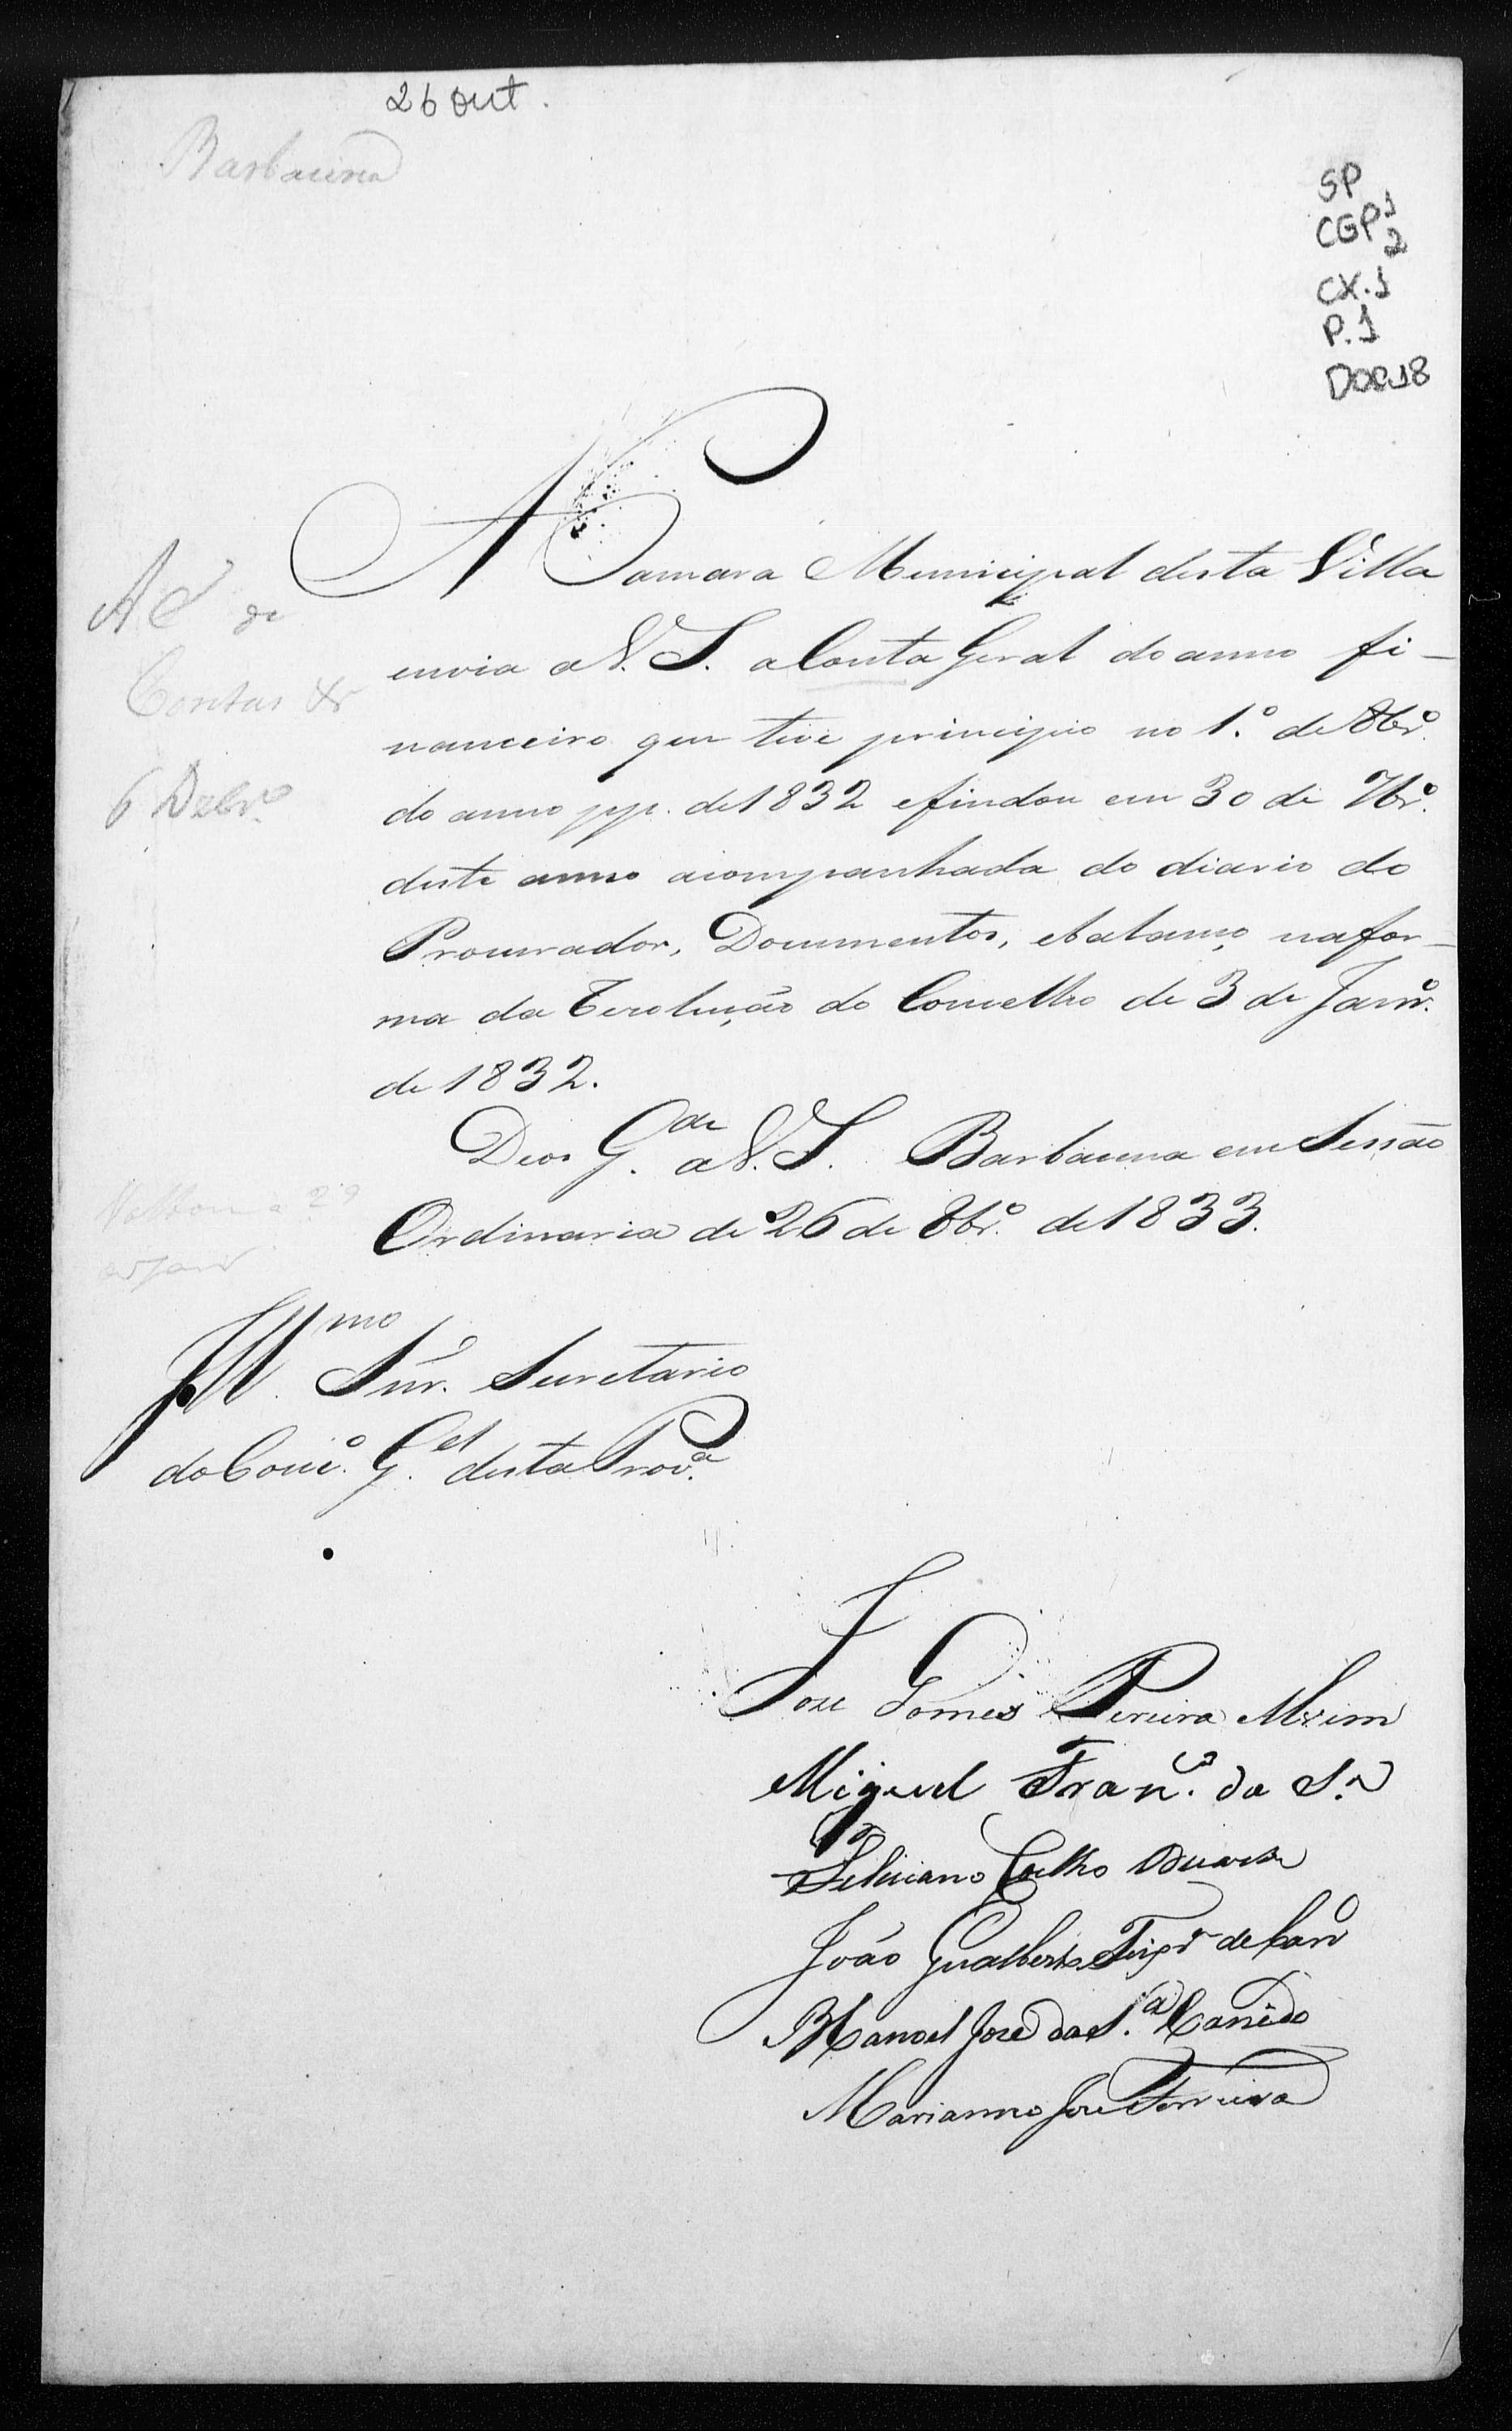 26 out.
Barbacena
SP
CGP 1
2
CX. 1
P. 1
DOC. 18
A Camara Municipal desta Villa
envia a V. S. a Conta Geral do anno fi-
nanceiro que teve principio no 1.º de 8br.º
do anno pp. de 1832 e findou em 30 de 7br.º
deste anno acompanhada do diario do
Procurador, Documentos, e balanço, na for-
ma da Resolução do Conselho de 3 de Janr.º
de 1832.
Deos G.de a V. S. Barbacena em Sessão
Ordinaria de 26 de 8br.º de 1833.
A C de
Contas &
6 Debr.º
Ill.mo Snr. Secretario
do Con.º G.el desta Prov.a
Joze Gomes Pereira
Miguel Fran.co da S.a
Feliciano Coelho Duarte
João Gualberto Teixr.a de Carv.º
Manoel José da S.a Canêdo
Marianno Jose Ferreira